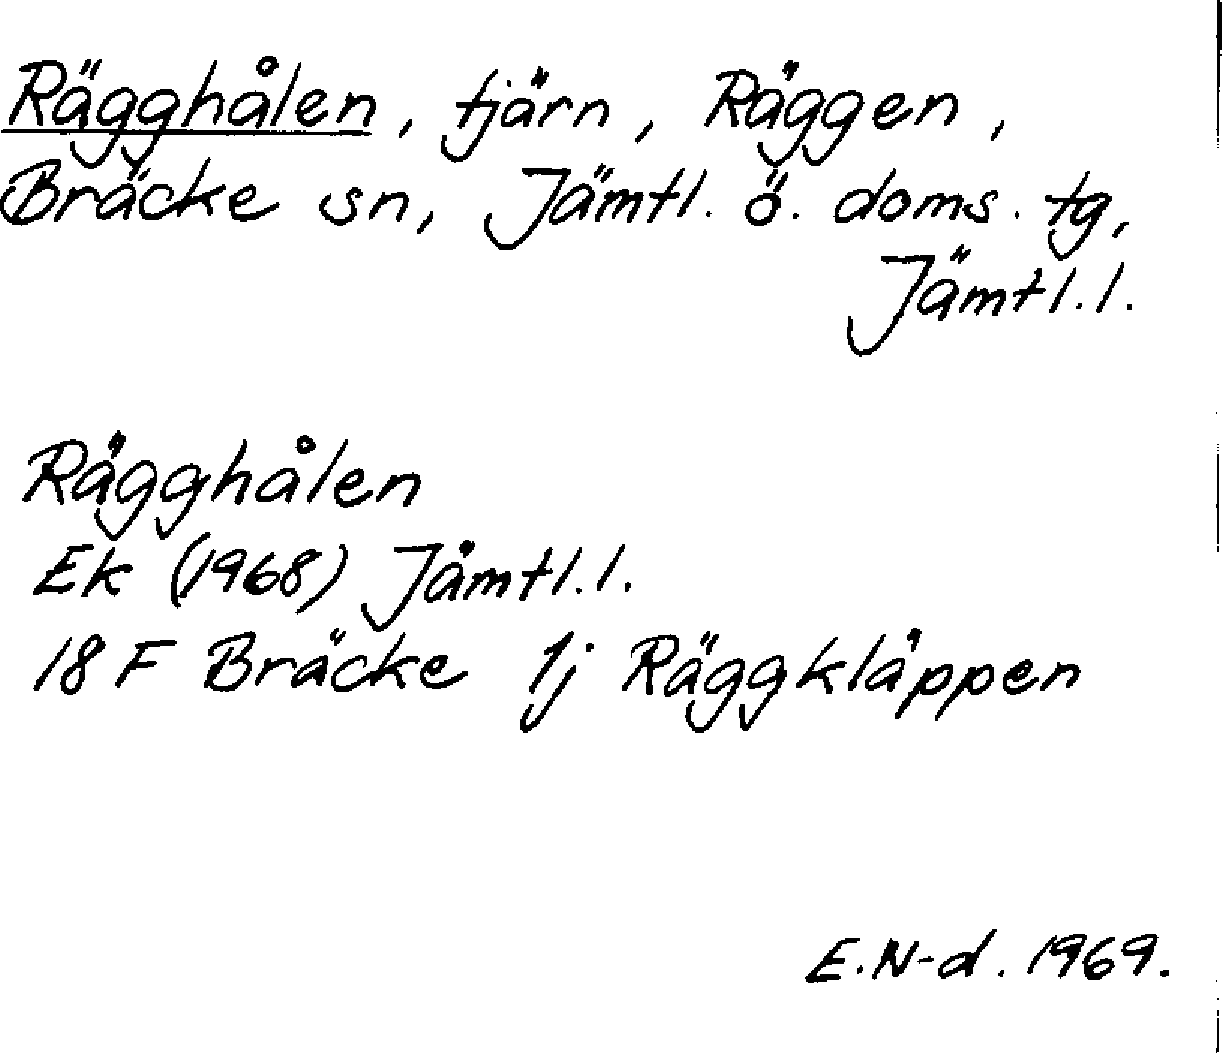 Rägghålen, tjärn, Räggen,
Bräcke sn, Jämtl. ö. doms. tg,
Jämtl. l.
Rägghålen
Ek (1968) Jämtl. l.
18 F Bräcke 1j Räggkläppen
E. N-d. 1969.